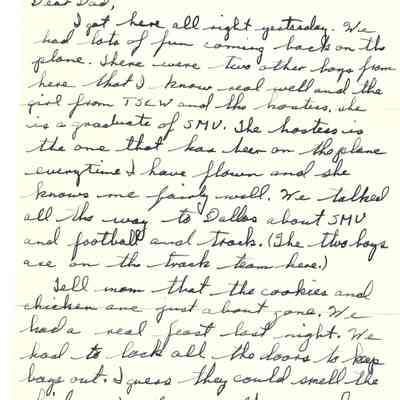 Dear Dad,
I got here all right yesterday. We
had lots of fun coming back on the
plane. There were two other boys from
here that I know real well and the
girl from TSCW and the hostess. She
is a graduate of SMU. The hostess is
the one that has been on the plane
everytime I have flown and she
knows me fairly well. We talked
all the way to Dallas about SMU
and football and track. (The two boys
are on the track team here.)
Tell mom that the cookies and
chicken are just about gone. We
had a real feast last night. We
had to lock all the doors to keep
boys out. I guess they could smell the